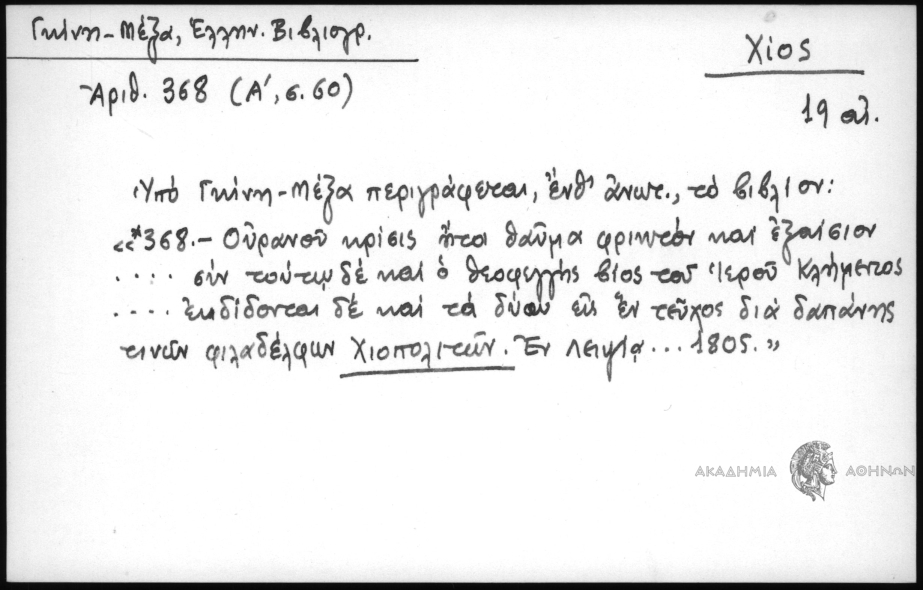 Γκίνη-Μέξα, Ἑλλην. Βιβλιογρ.
Χίος
Ἀριθ. 368 (Α', σ. 60)
19 αἰ.
Ὑπό Γκίνη-Μέξα περιγράφεται, ἔνθ' ἄνωτ., τό βιβλίον:
«*368.- Οὐρανοῦ κρίσις ἤτοι θαῦμα φρικτόν καί ἐξαίσιον
.... σύν τούτῳ δέ καί ὁ θεοφεγγής βίος τοῦ Ἱεροῦ Κλήμεντος
.... Ἐκδίδονται δέ καί τά δύω εἰς ἕν τεῦχος διά δαπάνης
τινῶν φιλαδέλφων Χιοπολιτῶν. Ἐν Λειψίᾳ ... 1805.»
ΑΚΑΔΗΜΙΑ ΑΘΗΝΩΝ